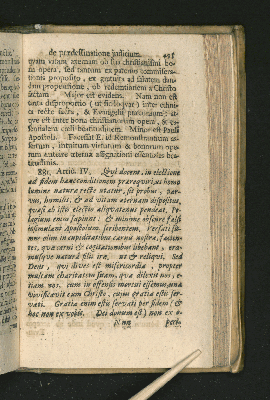 de prædestinatione judicium. 491
quam vitam æternam ob sua christianissimi ho-
mini opera, sed tantum ex paterno commisera-
tionis proposito, ex gratuita ad salutem dan-
dam propensione, ob redemtionem à Christo
factam. Major est evidens. Nam non est
tanta disproportio (ut sic loquar) inter ethni-
ce recte facta, & Evangelii præconium; at-
que est inter bona christianorum opera, &
cœlestem beatitudinem. Minor est Pauli
Apostoli. Facessat E. id Remonstrantium
forum, intuitum virtutum & bonorum ope-
rum
881. Artic. IV. Quod docent, in electione
ad fidem hanc conditionem prærequiri, ut homo
lumine naturæ recte utatur, sit probus, par-
vus, humilis, & ad vitam æternam dispositus,
quasi ab istis electio aliquatenus pendeat, Pe-
lagium enim sapiunt: & minime obscure falsi
insimulant Apostolum, scribentem, Versati su-
mus olim in cupiditatibus carnis nostræ, facien-
tes, quæ carni & cogitationibus libebant, era-
musque naturâ filii iræ, ut & reliqui. Sed
Deus, qui dives est misericordiâ, propter
multam charitatem suam, quâ dilexit nos, e-
tiam nos, cum in offensis mortui essemus, unà
vivificavit cum Christo, cujus gratiâ estis ser-
vati. Gratiâ enim estis servati per fidem: &
hoc non ex vobis. Dei donum est) non ex o-
peri-